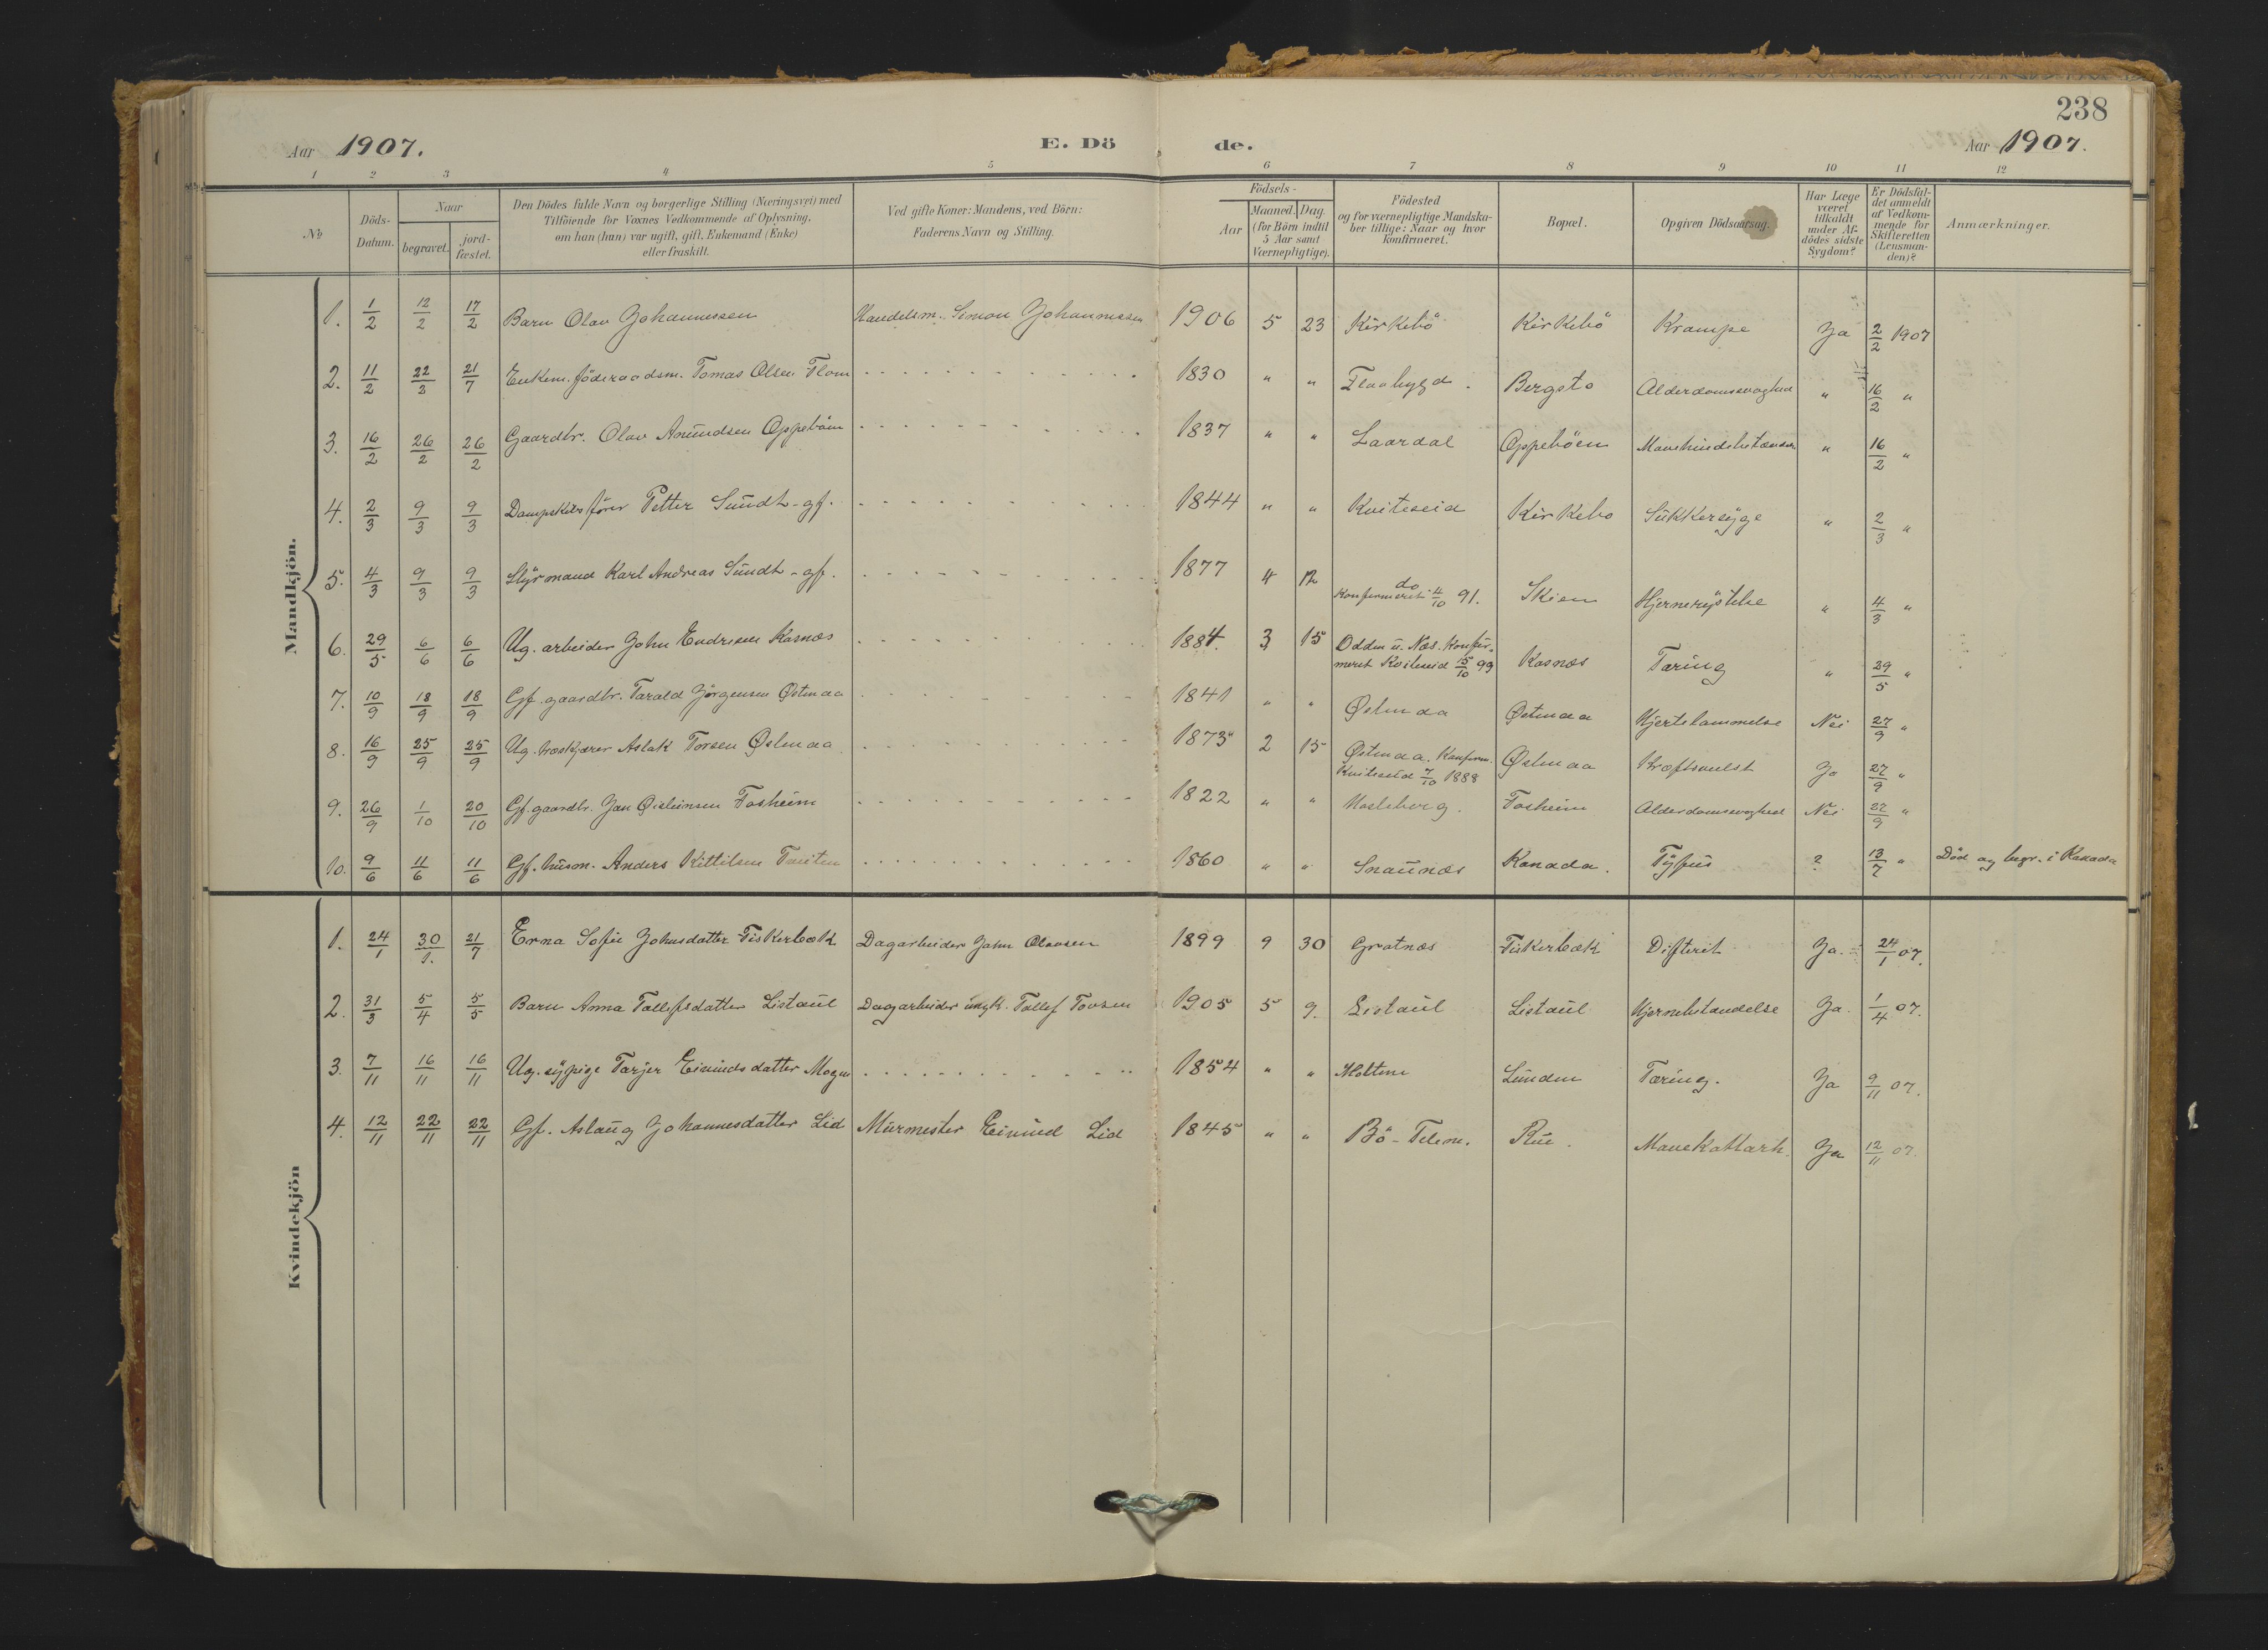 238
Aar 1907. E. Dö de. Aar 1907.
1 2 3 4 5 6 7 8 9 10 11 12
№
Döds-Datum.
Naar
begravet.
jord-fæstet.
Den Dödes fulde Navn og borgerlige Stilling (Næringsvei) med
Tilföiende for Voxnes Vedkommende af Oplysning,
om han (hun) var ugift, gift, Enkemand (Enke)
eller fraskilt.
Ved gifte Koner: Mandens, ved Börn:
Faderens Navn og Stilling.
Födsels-
Aar
Maaned. Dag.
(for Börn indtil
5 Aar samt
Værnepligtige).
Födested
og for værnepligtige Mandska-
ber tillige: Naar og hvor
konfirmeret.
Bopæl.
Opgiven Dödsaarsag.
Har Læge
været
tilkaldt
under Af-
dödes sidste
Sygdom?
Er Dödsfal-
det anmeldt
af Vedkom-
mende for
Skifteretten
(Lensman-
den)?
Anmærkninger.
Mandkjön.
1. 1/2 12/2 17/2 Barn Olav Johannessen Handelsm. Simon Johannessen 1906 5 23 Kirkebö Kirkebö Krampe Ja 2/2 1907
2. 11/2 22/3 21/7 Enkem. föderaadsm. Tomas Olsen Flom 1830 " " Flaabygd. Bergsto Alderdomssvaghed " 16/2 "
3. 16/2 26/2 26/2 Gaardbr. Olav Anundsen Oppeböen 1837 " " Laardal Oppeböen " 16/2 "
4. 2/3 9/3 9/3 Dampskibsförer Petter Sundt - gf. 1844 " " Kviteseid Kirkebö Sukkersyge " 2/3 "
5. 4/3 9/3 9/3 Styrmand Karl Andreas Sundt - gf. 1877 4 12 do Konfirmeret 4/10 91. Skien Hjernerystelse " 4/3 "
6. 29/5 6/6 6/6 Ug. arbeider John Endresen Kasnæs 1884. 3 15 Odden u. Næs. Konfir-
meret Kviteseid 15/10 99 Kasnæs Tæring " 29/5 "
7. 10/9 18/9 18/9 Gf. gaardbr. Tarald Jörgensen Østmaa 1841 " " Østmaa Østmaa Hjertelammelse Nei 27/9 "
8. 16/9 25/9 25/9 Ug. Aslak Torsen Østmaa 1873 2 15 Østmaa. Konfirm.
Kviteseid 7/10 1888 Østmaa Kræftsvulst Ja 27/9 "
9. 26/9 1/10 20/10 Gf. gaardbr. Jon Øisteinsen Fosheim 1822 " " Fosheim Alderdomssvaghed Nei 27/9 "
10. 9/6 11/6 11/6 Gf. husm. Anders Kittilsen 1860 " " Snaunæs Kanada. Tyfus ? 13/7 " Död og begr. i Kanada
Kvindekjön
1. 24/1 30/1. 21/7 Erna Sofie Johnsdatter Fiskerbæk Dagarbeider John Olavsen 1899 9 30 Grotnæs Fiskerbæk Difterit Ja. 24/1 07.
2. 31/3 5/4 5/5 Barn Anna Tallefsdatter Listaul Dagarbeider ungk. Tallef Tovsen 1905 5 9. Listaul Listaul Hjernebetændelse Ja. 1/4 07.
3. 7/11 16/11 16/11 Ug. sypige Tarjer Eivindsdatter Mogen 1854 " " Lunden Tæring. Ja 9/11 07.
4. 12/11 22/11 22/11 Gf. Aslaug Johannesdatter Lid Murmester Eivind Lid 1845 " " Bö - Telem. Rui. Mavekattarh. Ja 12/11 07.